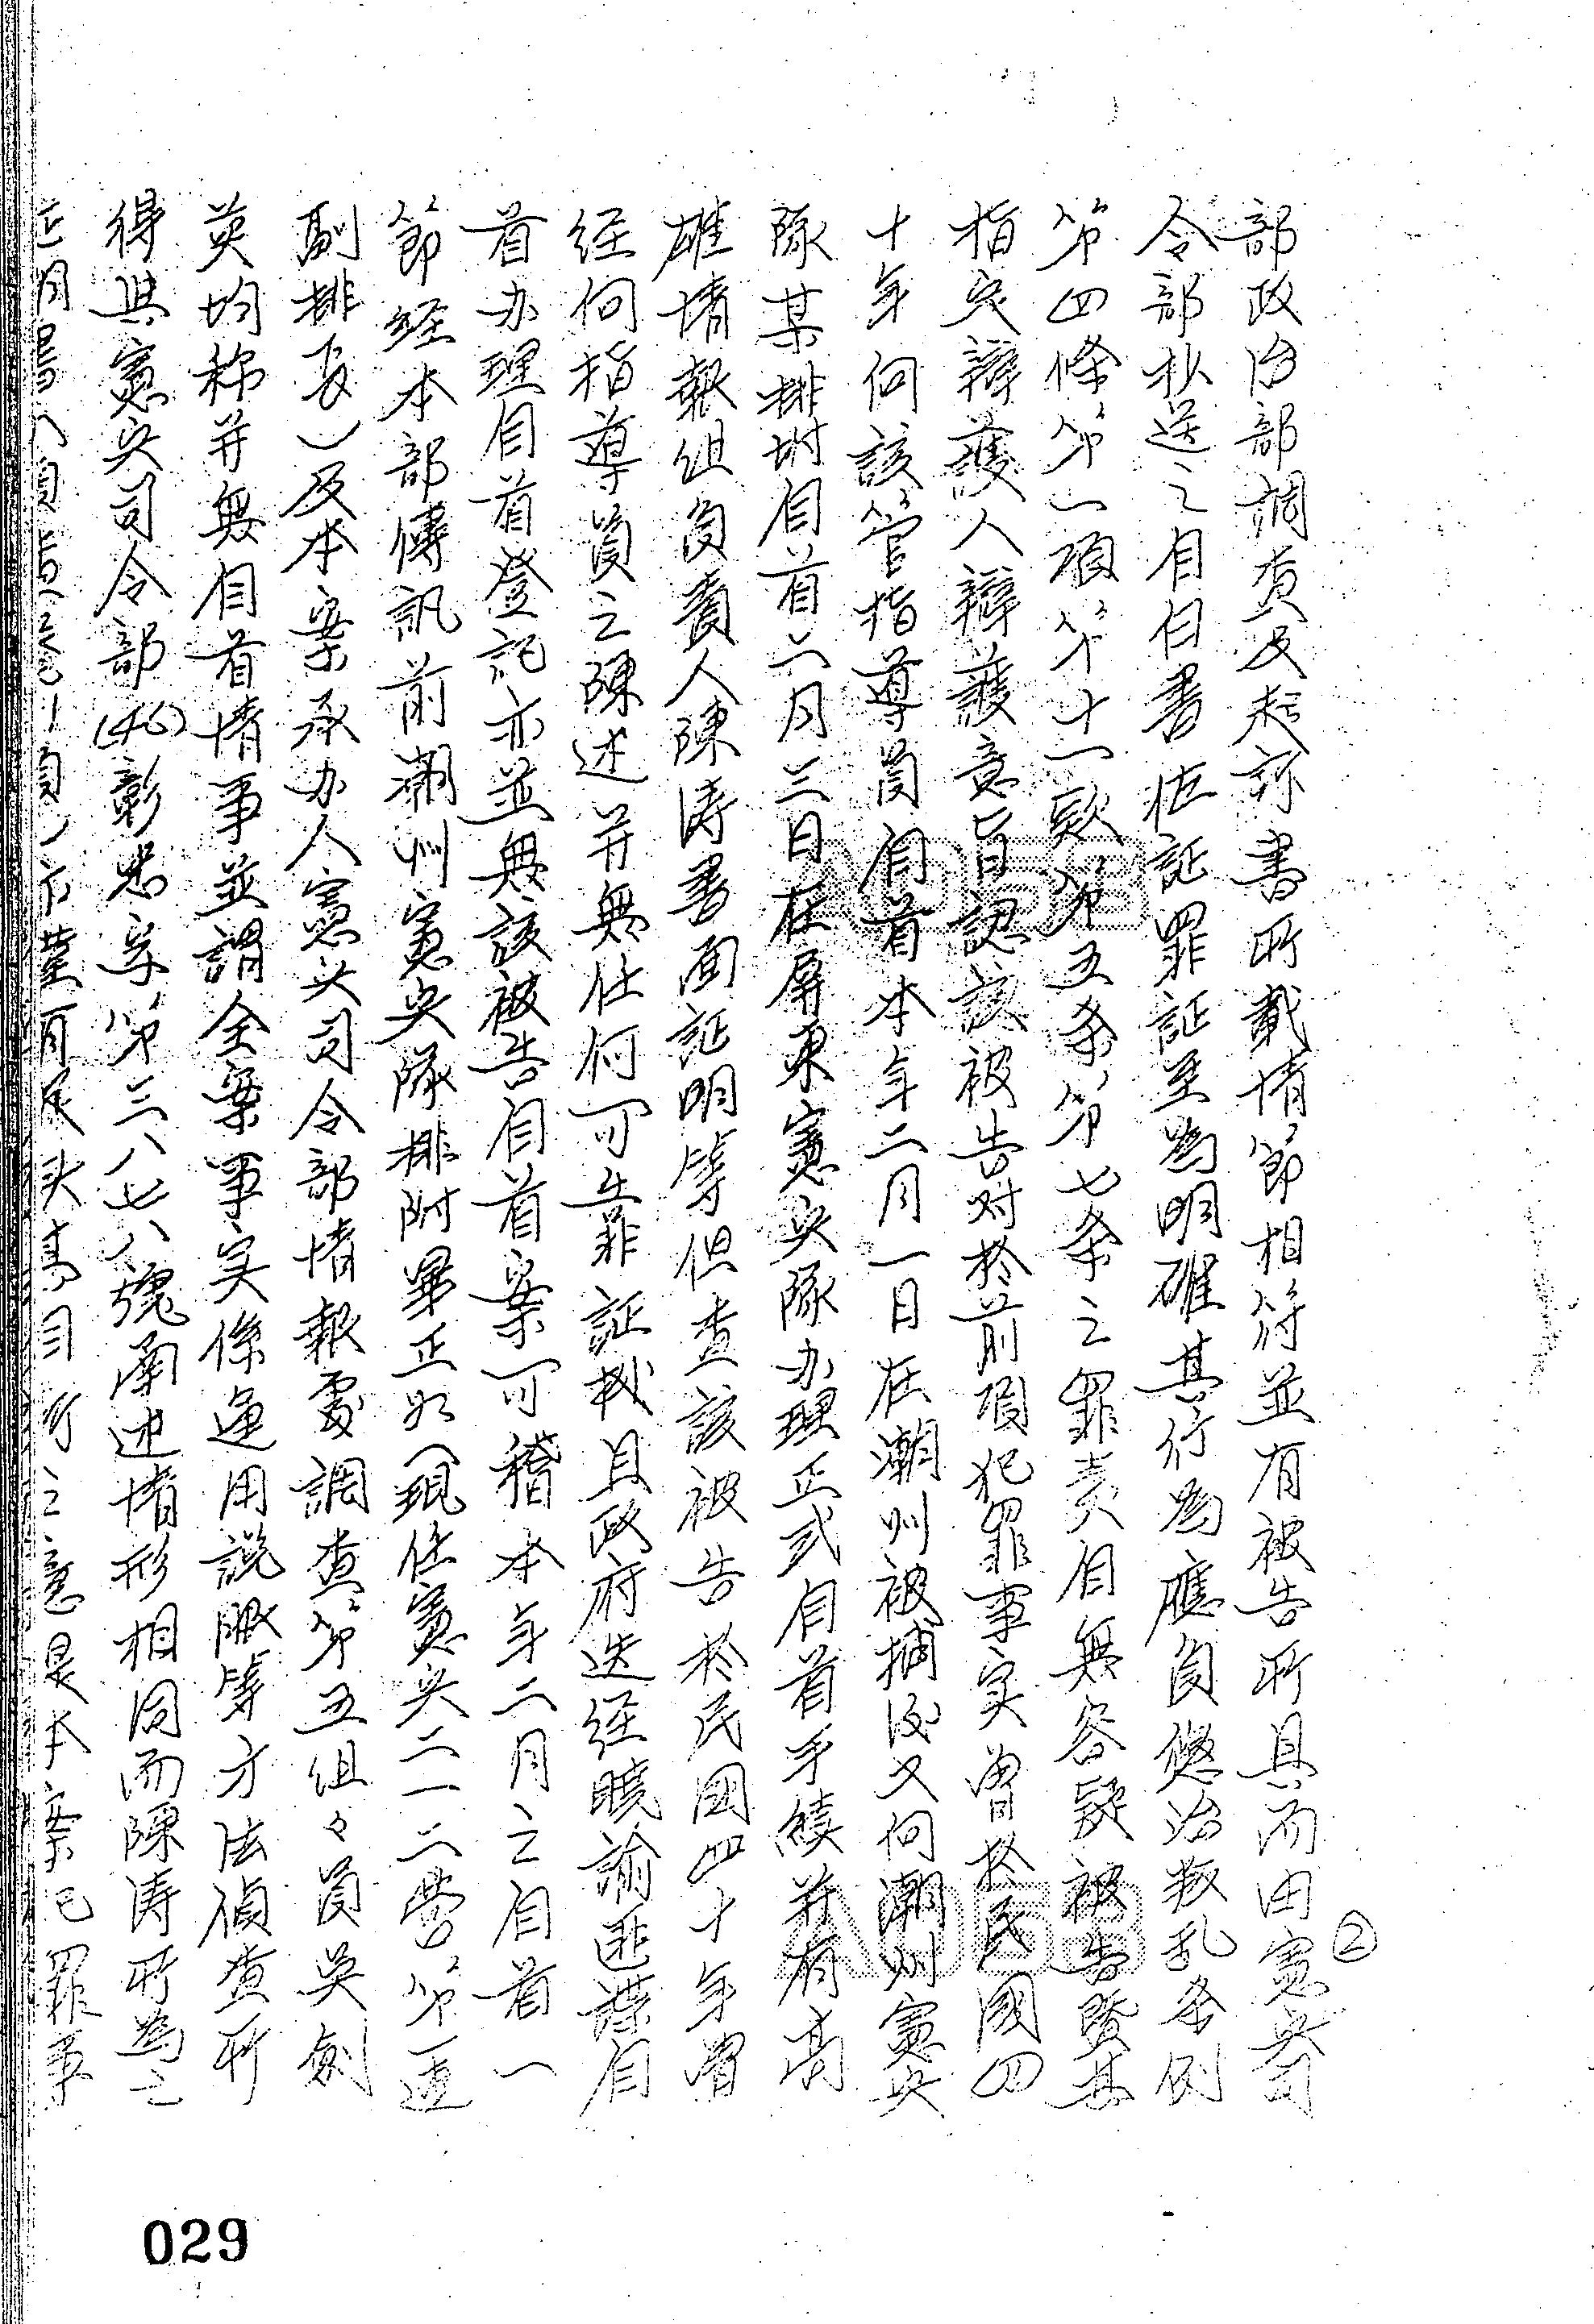 ②
部政治部調查及起訴書所載情節相符並有被告所具而由憲兵司
令部移送之自白書佐証罪証至為明確其行為應負懲治叛乱条例
第四條第一項第十一款第五条第七条之罪責自無容疑被告暨其
指定辯護人辯護意旨認該被告对於前項犯罪事实曾於民國四
十年向該管指導員自首本年二月一日在潮州被捕後又向潮州憲兵
隊某排坿自首二月三日在屏東憲兵隊办理正式自首手續并有高
雄情報組負責人陳涛書面証明等但查該被告於民國四十年曾
经向指導員之陳述并無任何可告罪証栽且政府迭经曉諭匪諜自
首办理自首登記亦並無該被告自首案可稽本年二月之自首一
節经本部傳訊前潮州憲兵隊排附畢正如(現任憲兵二一二營第一連
副排長)及本案承办人憲兵司令部情報處調查第五組々員吳劍
英均称并無自首情事並謂全案事实係運用說服等方法偵查所
得與憲兵司令部(46)彰忠字第三八七八號函述情形相同而陳涛所為之
之意是本案犯罪事
029
A058
A058